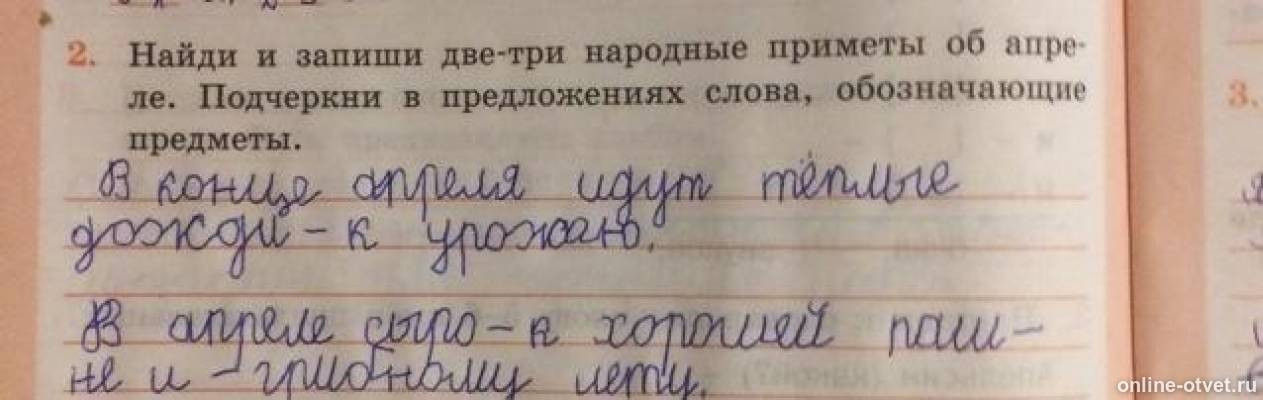 2. Найди и запиши две-три народные приметы об апре-
ле. Подчеркни в предложениях слова, обозначающие
предметы.
В конце апреля идут тёплые
дожди – к урожаю.
В апреле сыро – к хорошей паш-
не и – грибному лету.
3.
online-otvet.ru